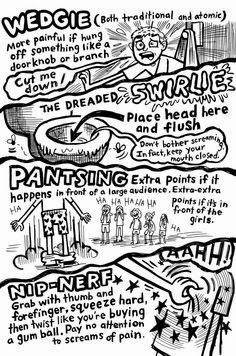 WEDGIE (Both traditional and atomic)
More painful if hung
off something like a
doorknob or branch
Cut me
down!
THE DREADED SWIRLIE
Place head here
and flush
Don't bother screaming.
In fact, keep your
mouth closed.
PANTSING Extra points if it
happens in front of a large audience. Extra-extra
points if it's in
front of the
girls.
HA
HA
HA HA HA HA
HA
AAHH!
NIP-NERF
Grab with thumb and
forefinger, squeeze hard,
then twist like you're buying
a gum ball. Pay no attention
to screams of pain.